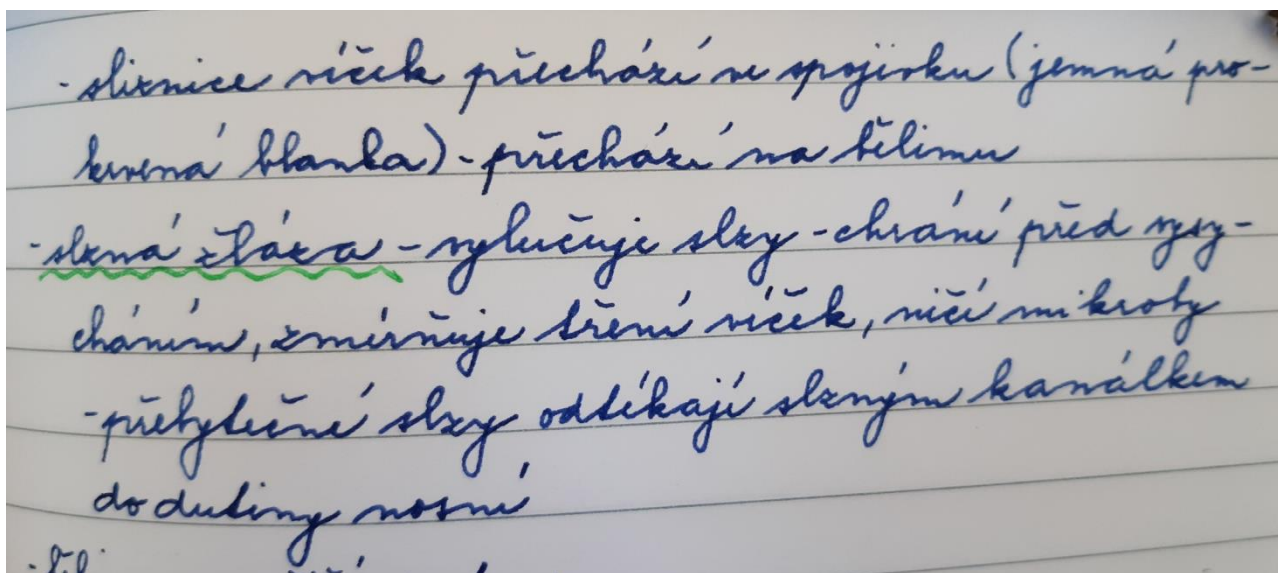 - sliznice víček přechází ve spojivku (jemná pro-
krvená blanka) - přechází na bělimu
- slzná žláza - vylučuje slzy - chrání před vysy-
cháním, zmírňuje tření víček, ničí mikroby
- přebytečné slzy odtékají slzným kanálkem
do dutiny nosní